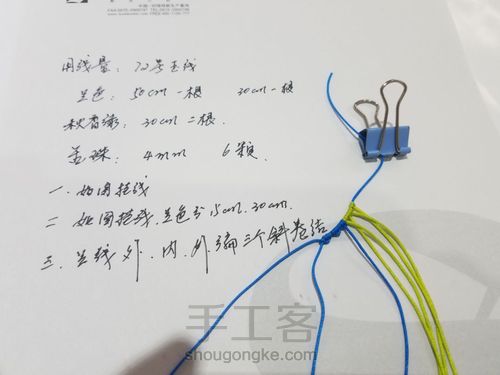 用线量：72号玉线
兰色：50cm一根 30cm一根
秋香绿：30cm二根.
盖珠：4mm 6颗.
一.如图挂线
二.如图挂线.兰色出15cm.30cm.
三.兰线外.内.外编三个斜卷结
手工客
shougongke.com